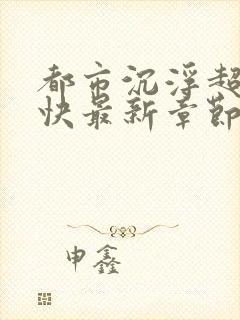 都市沉浮超
快最新章节
申鑫